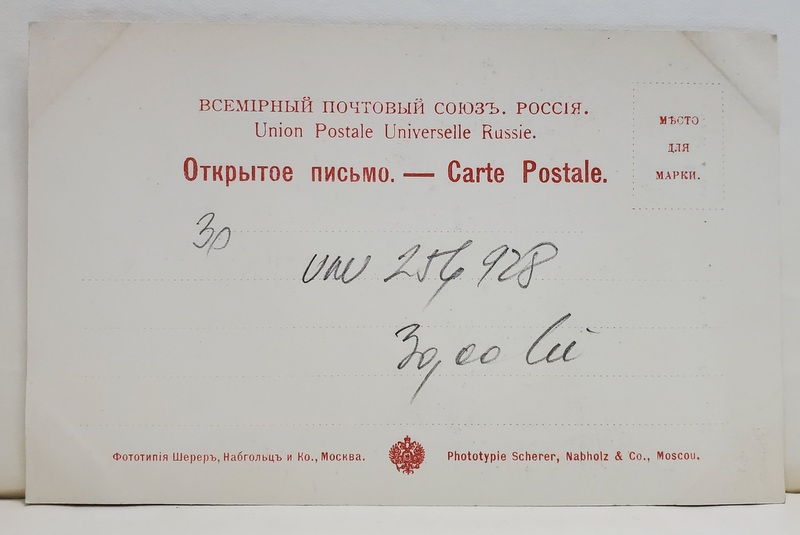 ВСЕМІРНЫЙ ПОЧТОВЫЙ СОЮЗЪ. РОССІЯ.
Union Postale Universelle Russie.
Открытое письмо. — Carte Postale.
МѢСТО
ДЛЯ
МАРКИ.
30
256 928
30,00
Фототипія Шереръ, Набгольцъ и Ко., Москва.
Phototypie Scherer, Nabholz & Co., Moscou.